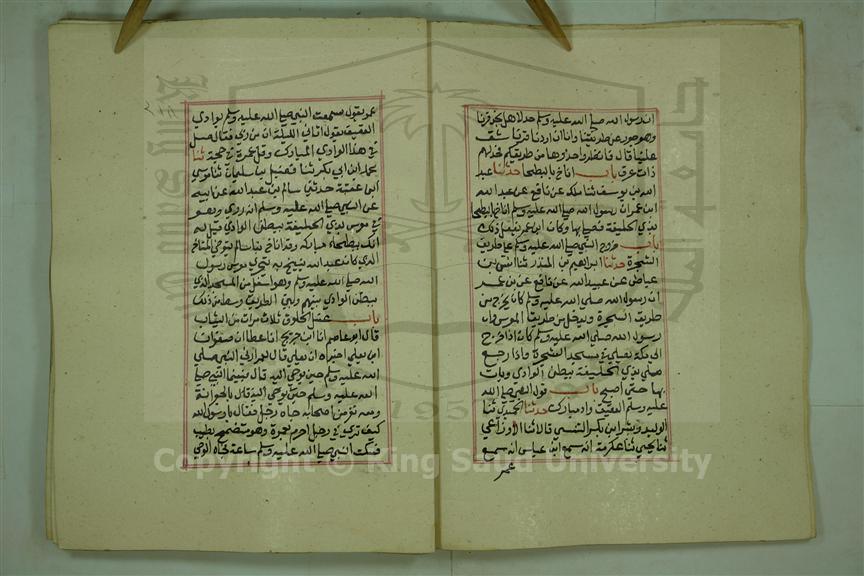 ان رسول الله صلى الله عليه وسلم حد لاهل نجد قرنا
وهو جور عن طريقنا وانا ان اردنا قرنا شق
علينا قال فانظروا حذوها من طريقكم فحد لهم
ذات عرق باب اناخ بالبطحا حدثنا عبد
الله بن يوسف ثنا ملك عن نافع عن عبد الله
ابن عمر ان رسول الله صلى الله عليه وسلم اناخ بالبطحا
بذي الحليفة فصلى بها وكان ابن عمر يفعل ذلك
باب خروج النبي صلى الله عليه وسلم على طريق
الشجرة حدثنا ابراهيم بن المنذر ثنا انس بن
عياض عن عبيد الله عن نافع عن بن عمر
ان رسول الله صلى الله عليه وسلم كان يخرج من
طريق الشجرة ويدخل من طريق المعرس وان
رسول الله صلى الله عليه وسلم كان اذا خرج
الى مكة يصلي في مسجد الشجرة واذا رجع
صلى بذي الحليفة ببطن الوادي وبات
بها حتى اصبح باب قول النبي صلى الله
عليه وسلم العقيق واد مبارك حدثنا الحميدي ثنا
الوليد وبشر ابن بكر التنيسي قالا ثنا الاوزاعي
ثنا يحيى ثنا عكرمة انه سمع ابن عباس انه سمع
عمر
عمر يقول سمعت النبي صلى الله عليه وسلم بوادي
العقيق يقول اتاني الليلة ات من ربي فقال صل
في هذا الوادي المبارك وقل عمرة في حجة ثنا
محمد ابن ابي بكر ثنا فضيل بن سليمان ثنا موسى
ابن عقبة حدثني سالم بن عبد الله عن ابيه
عن النبي صلى الله عليه وسلم انه روى وهو
في معرس بذي الحليفة ببطن الوادي قيل له
انك ببطحاء مباركة وقد اناخ بنا سالم يتوخى المناخ
الذي كان عبد الله ينيخ به يتحرى معرس رسول
الله صلى الله عليه وسلم وهو اسفل من المسجد الذي
ببطن الوادي بينهم وبين الطريق وسط من ذلك
باب غسل الخلوق ثلاث مرات من الثياب
قال ابو عاصم انا ابن جريج انا عطا ان صفوان
ابن يعلى اخبره ان يعلى قال لعمر ارني النبي صلى
الله عليه وسلم حين يوحى اليه قال فبينما النبي صلى
الله عليه وسلم حتى يوحى اليه قال بالجعرانة
ومعه نفر من اصحابه جاه رجل فقال يا رسول الله
كيف ترى في رجل احرم بعمرة وهو متضمخ بطيب
فسكت النبي صلى الله عليه وسلم ساعة فجاه الوحي
جامعة الملك سعود
1957
Copyright © King Saud University